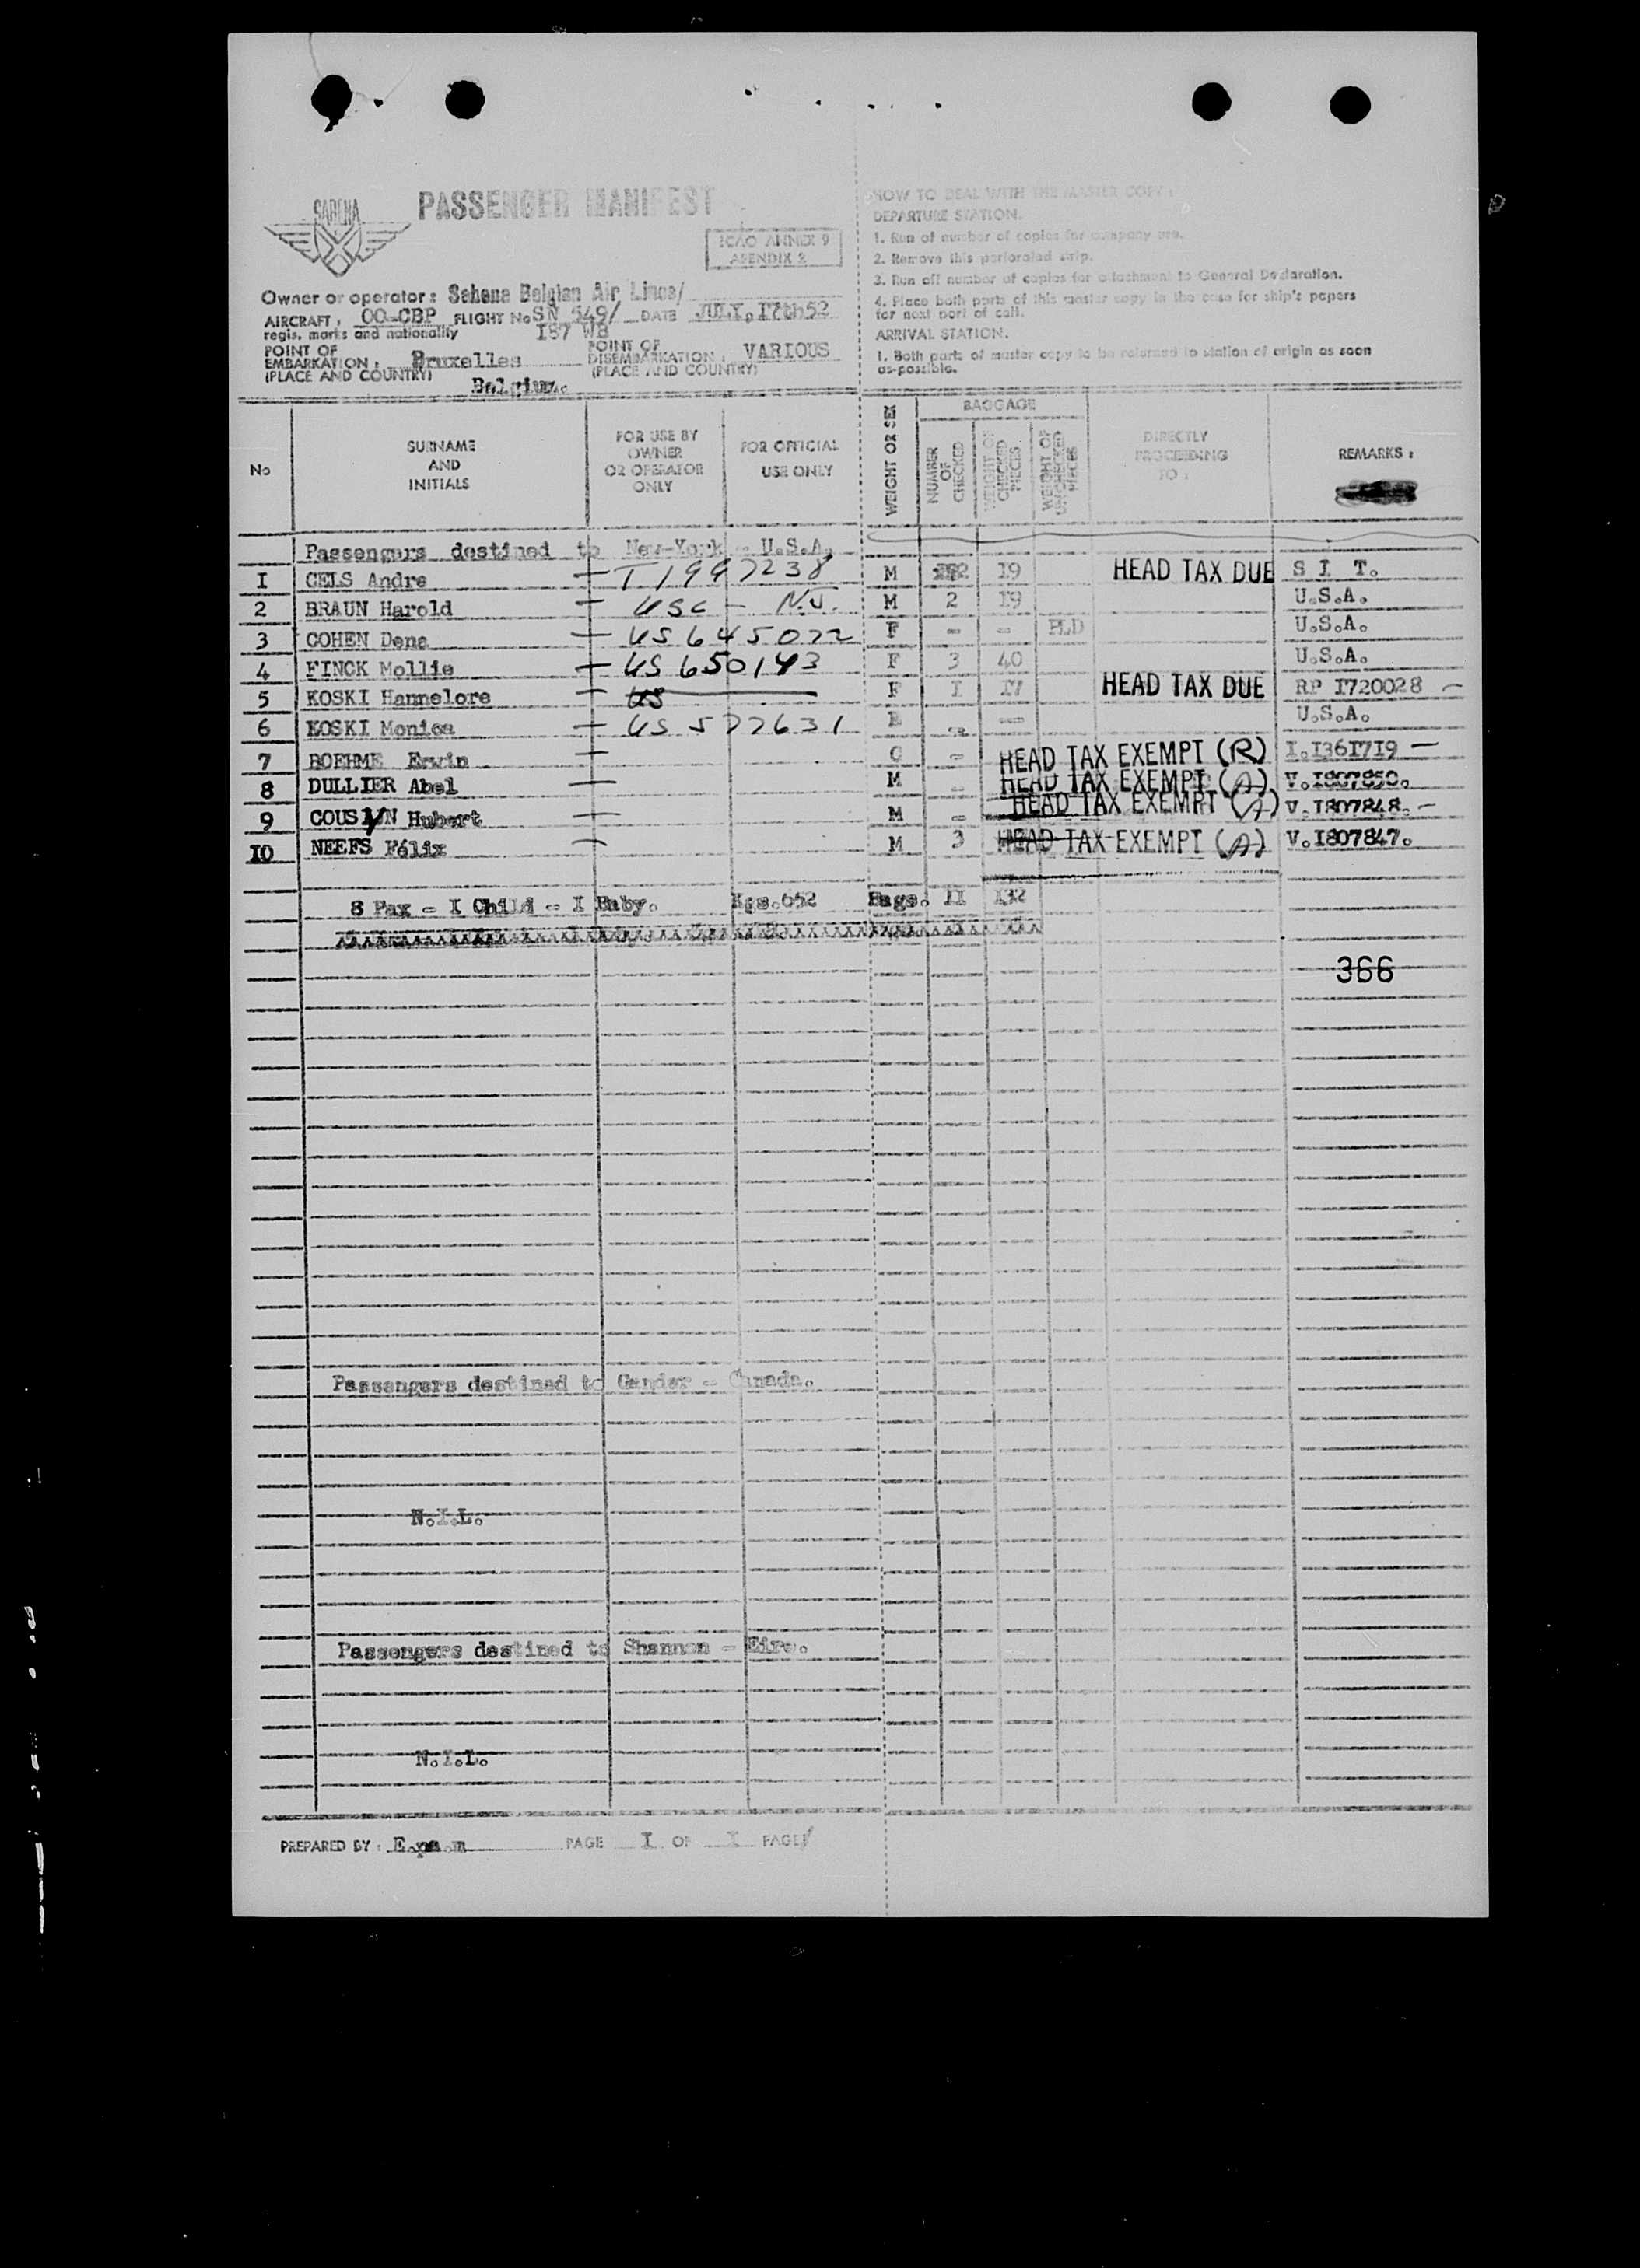 SABENA
PASSENGER MANIFEST
ICAO ANNEX 9
APENDIX 2
Owner or operator : Sabena Belgian Air Lines/
AIRCRAFT : OO-CBP FLIGHT No SN 549/ DATE JULY, 17th 52
regis. marks and nationality I87 WB
POINT OF EMBARKATION : Bruxelles POINT OF DISEMBARKATION : VARIOUS
(PLACE AND COUNTRY) Belgium. (PLACE AND COUNTRY)
HOW TO DEAL WITH THE MASTER COPY :
DEPARTURE STATION.
1. Run of number of copies for company use.
2. Remove this perforated strip.
3. Run off number of copies for attachment to General Declaration.
4. Place both parts of this master copy in the case for ship's papers
for next port of call.
ARRIVAL STATION.
1. Both parts of master copy to be returned to station of origin as soon
as possible.
No
SURNAME
AND
INITIALS
FOR USE BY
OWNER
OR OPERATOR
ONLY
FOR OFFICIAL
USE ONLY
WEIGHT OR SEX
BAGGAGE
NUMBER OF CHECKED
WEIGHT OF CHECKED PIECES
WEIGHT OF UNCHECKED PIECES
DIRECTLY
PROCEEDING
TO :
REMARKS :
Passengers destined to New-York - U.S.A.
I CELS Andre — T 1997238 M 2 19 HEAD TAX DUE S I T.
2 BRAUN Harold — USC - N.J. M 2 19 U.S.A.
3 COHEN Dena — US 645072 F - - PLD U.S.A.
4 FINCK Mollie — US 650143 F 3 40 U.S.A.
5 KOSKI Hannelore — US F I 17 HEAD TAX DUE RP I720028 —
6 KOSKI Monica — US 577631 B - - U.S.A.
7 BOEHME Erwin — C - HEAD TAX EXEMPT (R) I.I36I7I9 —
8 DULLIER Abel — M - HEAD TAX EXEMPT (A) V.I807850.
9 COUSIN Hubert — M - HEAD TAX EXEMPT (A) V.I807848. —
IO NEEFS Félix — M 3 HEAD TAX EXEMPT (A) V.I807847.
8 Pax - I Child - I Baby. Kgs.652 Bags. II I32
366
Passengers destined to Gander - Canada.
N.I.L.
Passengers destined to Shannon - Eire.
N.I.L.
PREPARED BY : PAGE I OF I PAGE/